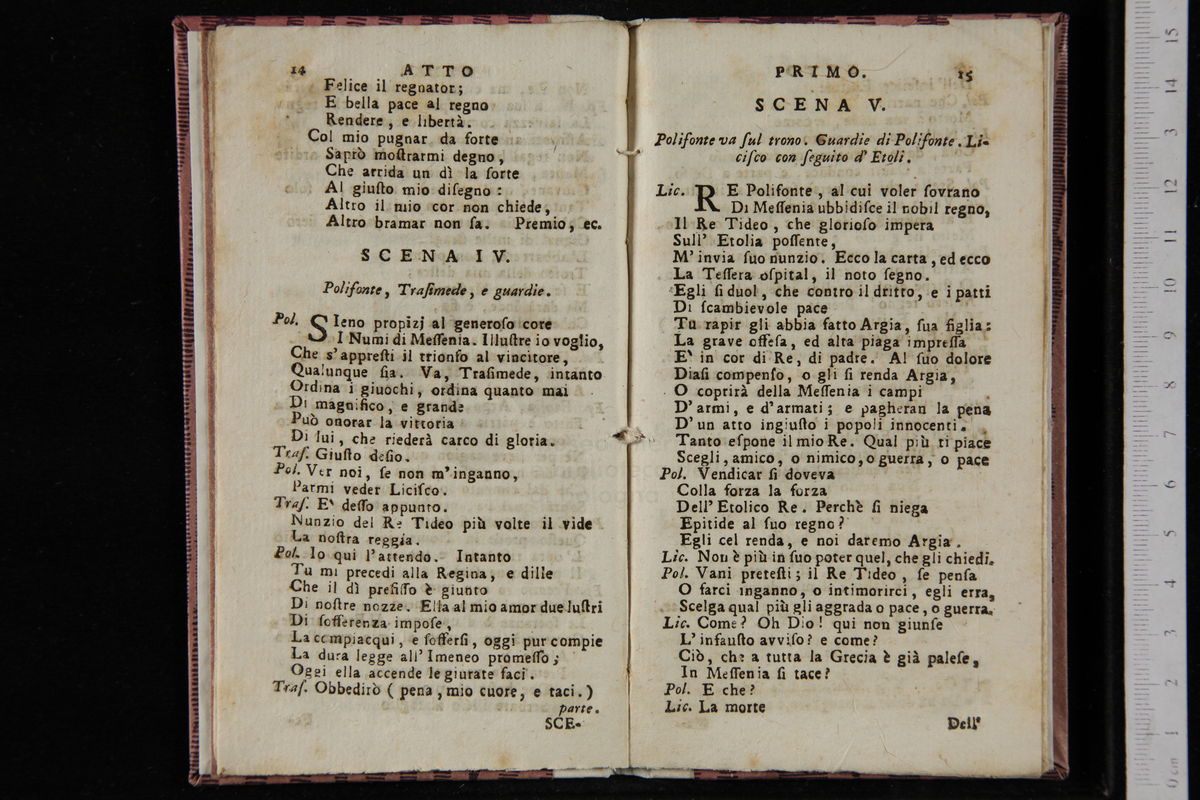 14 ATTO
Felice il regnator;
E bella pace al regno
Rendere, e libertà.
Col mio pugnar da forte
Saprò moſtrarmi degno,
Che arrida un dì la ſorte
Al giuſto mio diſegno:
Altro il mio cor non chiede,
Altro bramar non ſa. Premio, ec.
SCENA IV.
Polifonte, Traſimede, e guardie.
Pol. SIeno propizj al generoſo core
I Numi di Meſſenia. Illuſtre io voglio,
Che s'appreſti il trionfo al vincitore,
Qualunque ſia. Va, Traſimede, intanto
Ordina i giuochi, ordina quanto mai
Di magnifico, e grande
Può onorar la vittoria
Di lui, che riederà carco di gloria.
Traſ. Giuſto deſio.
Pol. Ver noi, ſe non m'inganno,
Parmi veder Liciſco.
Traſ. E' deſſo appunto.
Nunzio del Re Tideo più volte il vide
La noſtra reggia.
Pol. Io qui l'attendo. Intanto
Tu mi precedi alla Regina, e dille
Che il dì prefiſſo è giunto
Di noſtre nozze. Ella al mio amor due luſtri
Di ſofferenza impoſe,
La compiacqui, e ſofferſi, oggi pur compie
La dura legge all'Imeneo promeſſo;
Oggi ella accende le giurate faci.
Traſ. Obbedirò (pena, mio cuore, e taci.)
parte.
SCE-
PRIMO. 15
SCENA V.
Polifonte va ſul trono. Guardie di Polifonte. Li-
ciſco con ſeguito d'Etoli.
Lic. RE Polifonte, al cui voler ſovrano
Di Meſſenia ubbidiſce il nobil regno,
Il Re Tideo, che glorioſo impera
Sull' Etolia poſſente,
M'invia ſuo nunzio. Ecco la carta, ed ecco
La Teſſera oſpital, il noto ſegno.
Egli ſi duol, che contro il dritto, e i patti
Di ſcambievole pace
Tu rapir gli abbia fatto Argia, ſua figlia:
La grave offeſa, ed alta piaga impreſſa
E' in cor di Re, di padre. Al ſuo dolore
Diaſi compenſo, o gli ſi renda Argia,
O coprirà della Meſſenia i campi
D'armi, e d'armati; e pagheran la pena
D'un atto ingiuſto i popoli innocenti.
Tanto eſpone il mio Re. Qual più ti piace
Scegli, amico, o nimico, o guerra, o pace
Pol. Vendicar ſi doveva
Colla forza la forza
Dell'Etolico Re. Perchè ſi niega
Epitide al ſuo regno?
Egli cel renda, e noi daremo Argia.
Lic. Non è più in ſuo poter quel, che gli chiedi.
Pol. Vani preteſti; il Re Tideo, ſe penſa
O farci inganno, o intimorirci, egli erra,
Scelga qual più gli aggrada o pace, o guerra.
Lic. Come? Oh Dio! qui non giunſe
L'infauſto avviſo? e come?
Ciò, che a tutta la Grecia è già paleſe,
In Meſſenia ſi tace?
Pol. E che?
Lic. La morte
Dell'